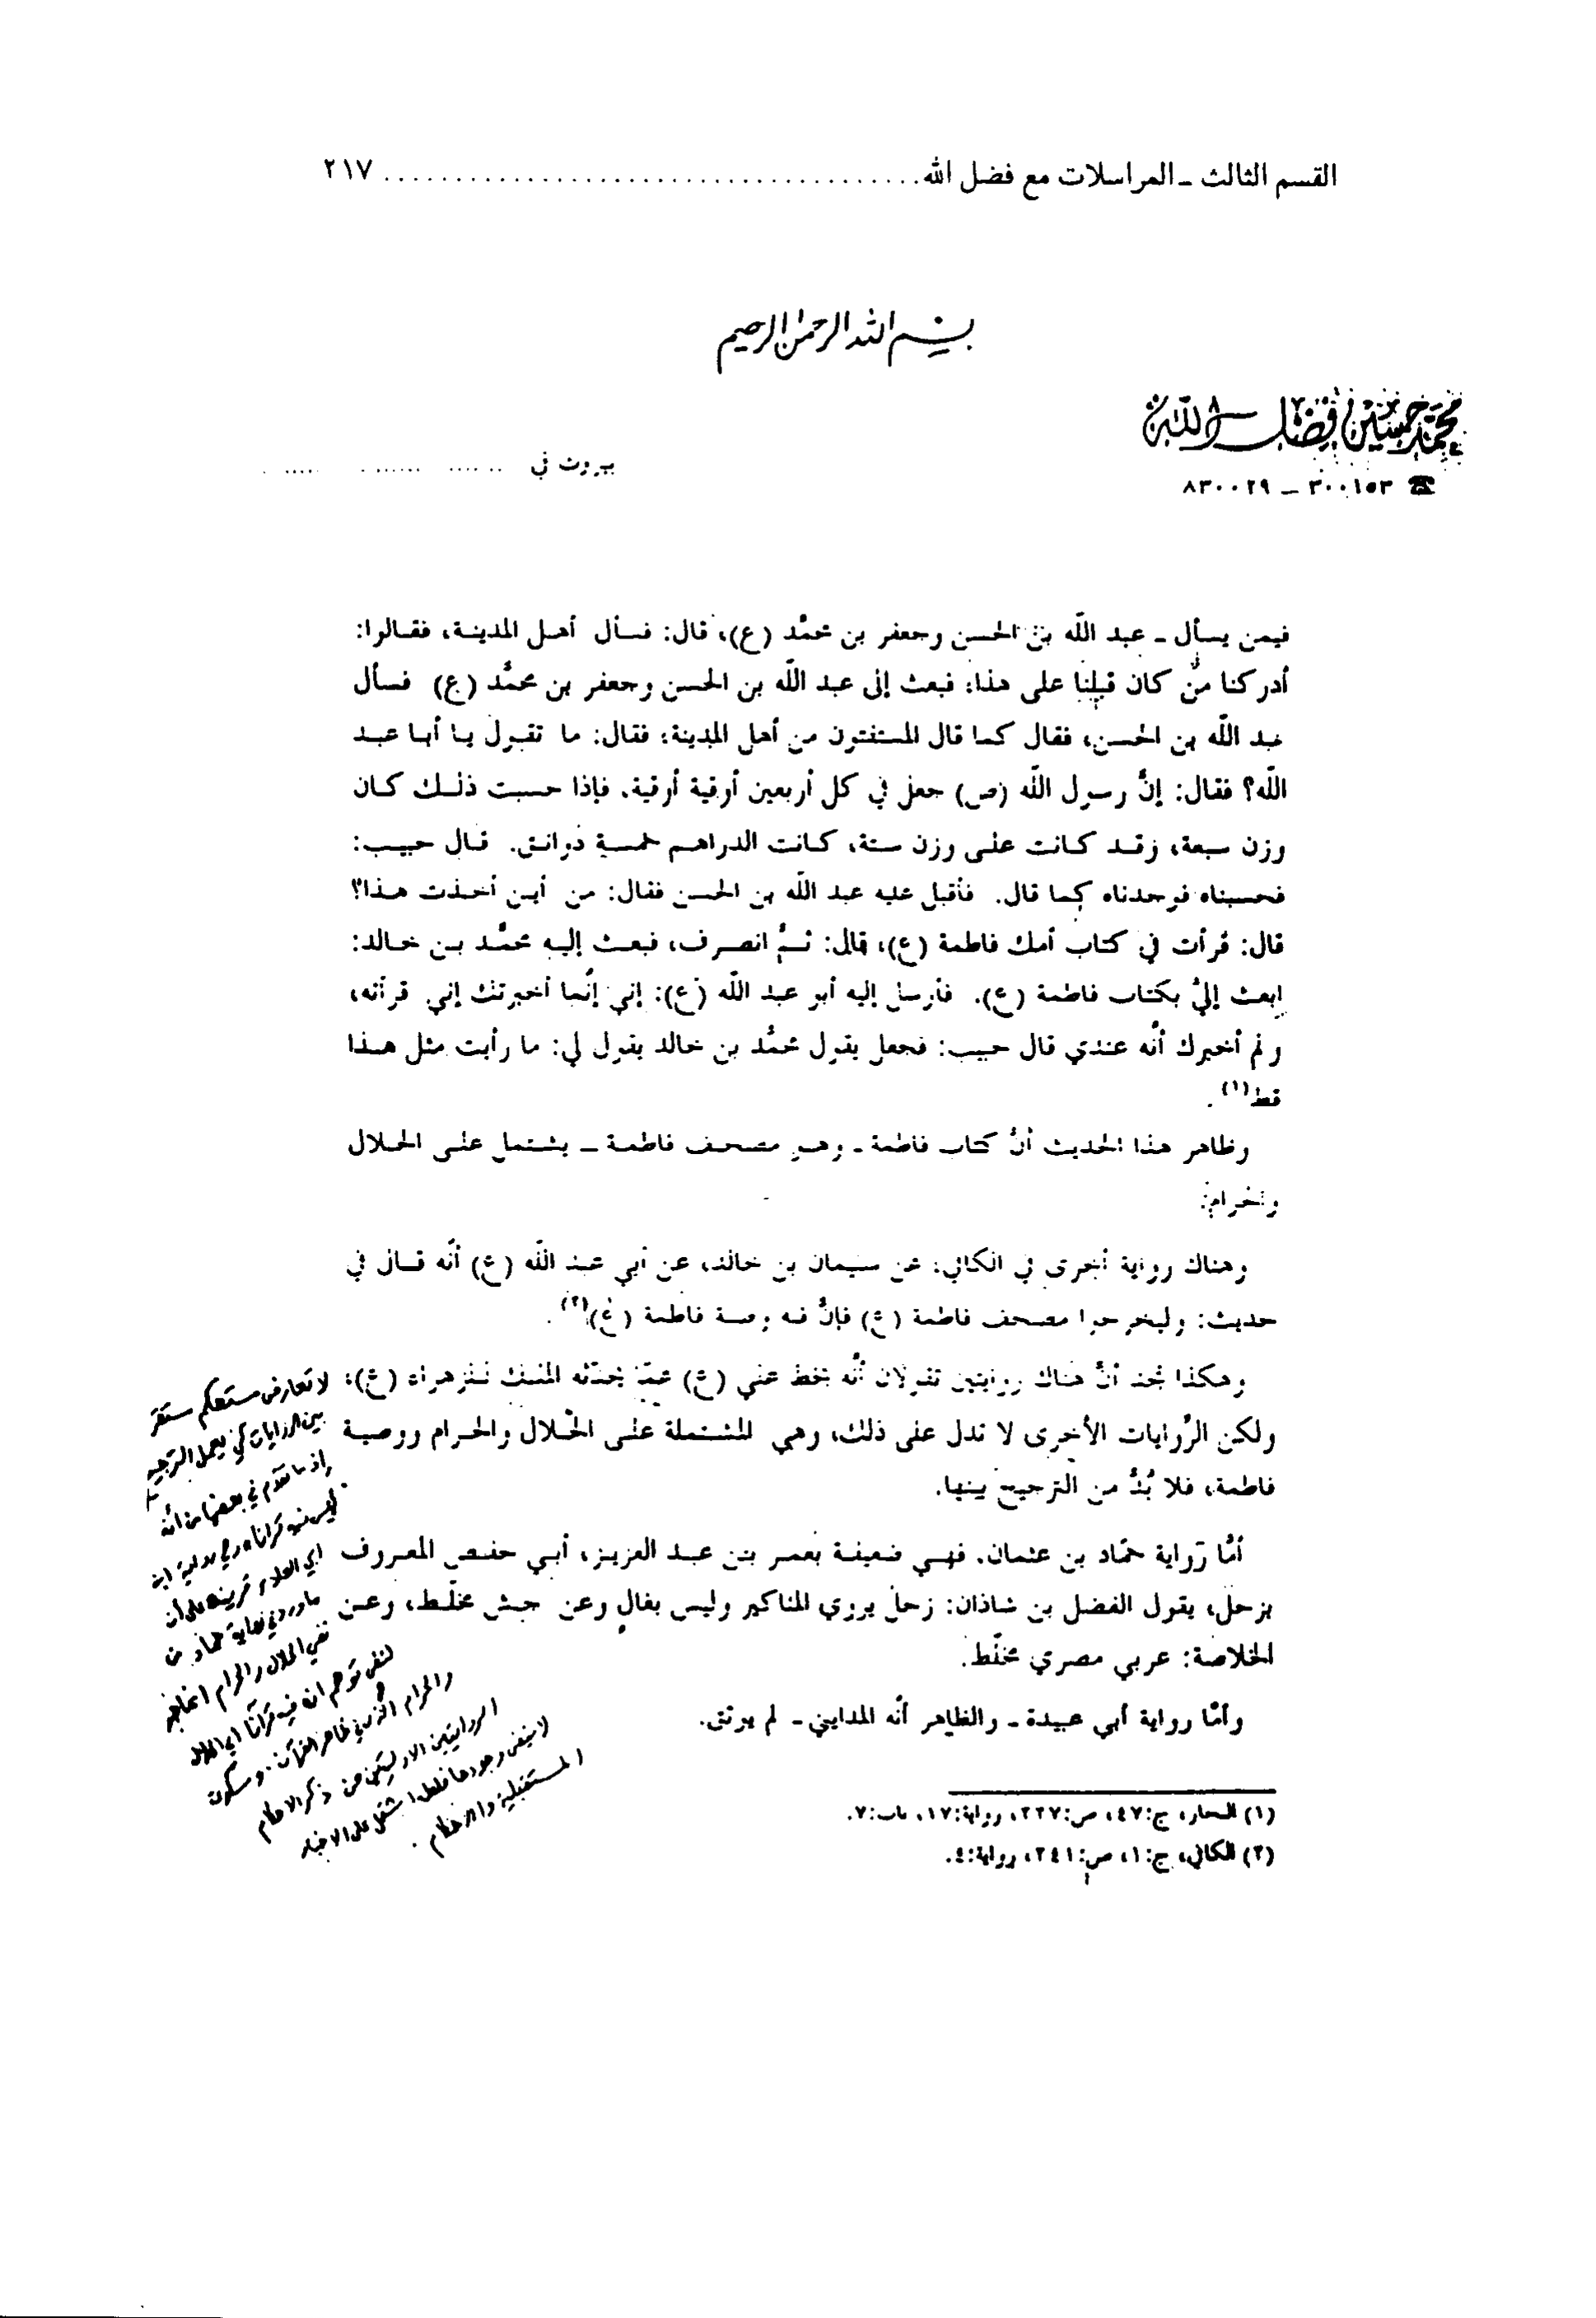 القسم الثالث ـ المراسلات مع فضل الله ........................................ ٢١٧
بسم الله الرحمن الرحيم
محمد حسين فضل الله
☎ ٣٠٠١٥٣ – ٨٣٠٠٢٩
بيروت في
فيمن يسأل ـ عبد الله بن الحسن وجعفر بن محمّد (ع)، قال: فسأل أهل المدينة، فقالوا:
أدركنا من كان قبلنا على هذا، فبعث إلى عبد الله بن الحسن وجعفر بن محمّد (ع) فسأل
عبد الله بن الحسن، فقال كما قال المستفتون من أهل المدينة، فقال: ما تقول يا أبا عبد
الله؟ فقال: إنَّ رسول الله (ص) جعل في كل أربعين أوقية أوقية، فإذا حسبت ذلك كان
وزن سبعة، وقد كانت على وزن ستة، كانت الدراهم خمسة دوانق. قال حبيب:
فحسبناه فوجدناه كما قال. فأقبل عليه عبد الله بن الحسن فقال: من أين أخذت هذا؟
قال: قرأت في كتاب أمك فاطمة (ع)، قال: ثمَّ انصرف، فبعث إليه محمَّد بن خالد:
ابعث إليَّ بكتاب فاطمة (ع). فأرسل إليه أبو عبد الله (ع): إني إنَّما أخبرتك إني قرأته،
ولم أخبرك أنَّه عندي قال حبيب: فجعل يقول محمَّد بن خالد يقول لي: ما رأيت مثل هذا
قط(١).
وظاهر هذا الحديث أنَّ كتاب فاطمة ـ وهو مصحف فاطمة ـ يشتمل على الحلال
والحرام.
وهناك رواية أخرى في الكافي: عن سليمان بن خالد، عن أبي عبد الله (ع) أنَّه قال في
حديث: وليخرجوا مصحف فاطمة (ع) فإنَّ فيه وصية فاطمة (ع)(٢).
وهكذا نجد أنَّ هناك روايتين تقولان أنَّه بخط علي (ع) عمّا يحدّثه الملك للزهراء (ع)،
ولكن الرُّوايات الأخرى لا تدل على ذلك، وهي المشتملة على الحلال والحرام ووصية
فاطمة، فلا بُدَّ من الترجيح بينها.
أمَّا رواية حمّاد بن عثمان. فهي ضعيفة بعمر بن عبد العزيز، أبي حفص المعروف
بزحل، يقول الفضل بن شاذان: زحل يروي المناكير وليس بغالٍ وعن جبش مخلّط، وعن
الخلاصة: عربي مصري مخلّط.
وأمّا رواية أبي عبيدة ـ والظاهر أنَّه المدايني ـ لم يوثق.
لا تعارض مستحكم مستقر
بين الروايات كي يصل الترجيح
إذ ما تقدم في بعضها من أنه
ليس فيه قرآنا
أبي العلاء قرينة على أن
ما ورد في نهاية حماد من
نفي الحلال والحرام انما جيء
لنفي توهم ان فيه قرآنا أي الحلال
والحرام الذي في ظاهر القرآن. وسكوت
الروايتين الاوليتين من ذكر الاحكام
لا ينفي وجودها فلعله اشتمل على الاخبار
المستقبلية والاحكام.
(١) البحار، ج:٤٧، ص:٢٢٧، رواية:١٧، باب:٧.
(٢) الكافي، ج:١، ص:٢٤١، رواية:٤.